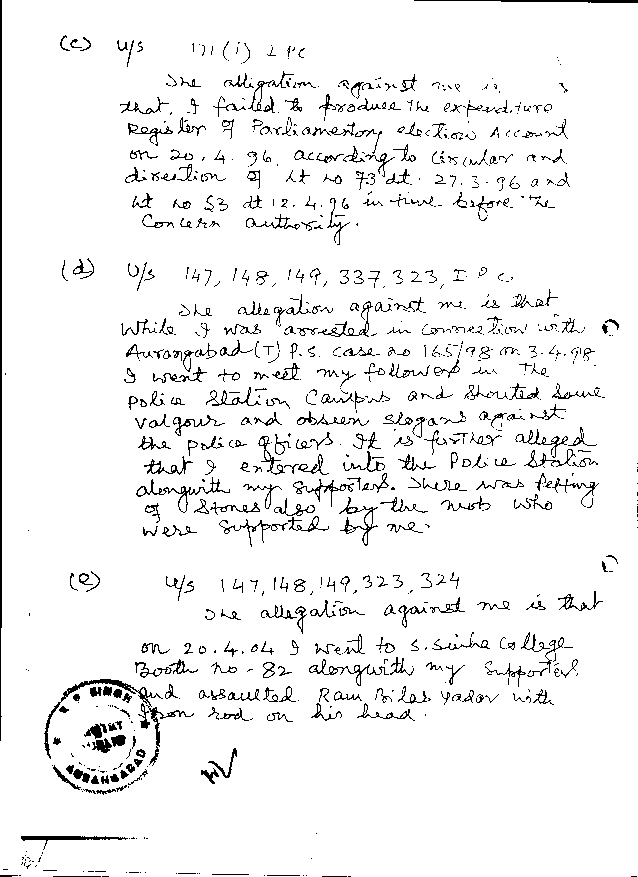 (c) U/s 171(i) I PC
The alligation against me is
that, I failed to produce the expenditure
Register of Parliamentory election Account
on 20.4.96, according to Circular and
direction of Lt no 73 dt. 27.3.96 and
Lt no 53 dt 12.4.96 in time before the
Concern authority.
(d) U/s 147, 148, 149, 337, 323, I P C.
The allegation against me is that
While I was arrested in connection with
Aurangabad (T) P.S. case no 165/98 on 3.4.98
I went to meet my followers in The
police Station Campus and Shouted Some
valgour and obseen slogans against
the police officers. It is further alleged
that I entered into the Police Station
alongwith my supporters. There was Pelting
of Stones also by the mob who
were supported by me.
(e) U/s 147, 148, 149, 323, 324
The allegation against me is that
on 20.4.04 I went to S. Sinha College
Booth no - 82 alongwith my Supporters
and assaulted Ram Bilas Yadav with
Iron rod on his head.
SINGH
AURANGABAD